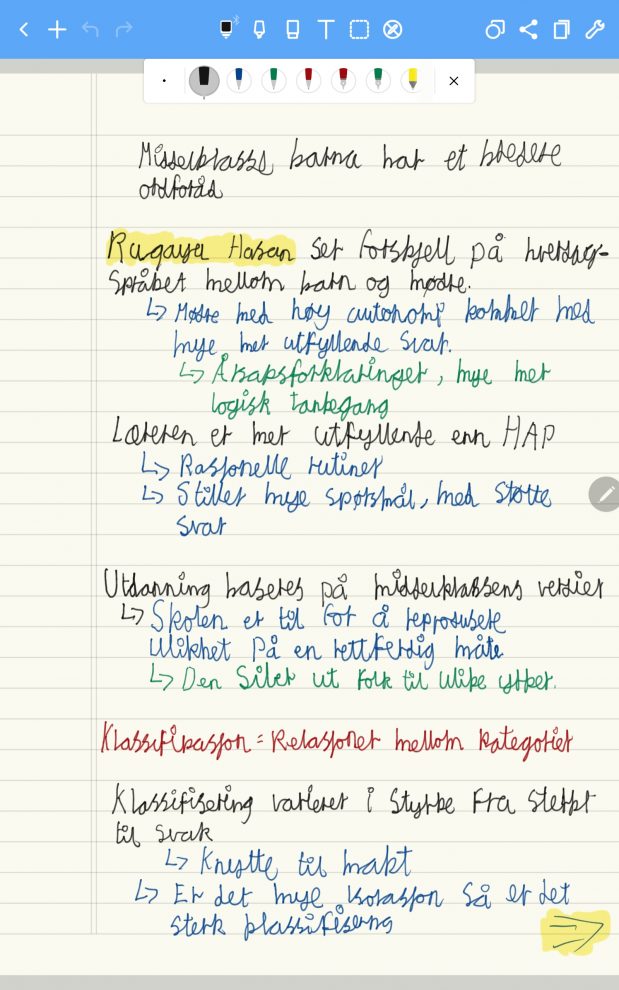 Middelklasse barna har et bredere
ordforåd
Ruqaiya Hasan ser forskjell på hverdags-
språket mellom barn og mødre.
↳ Mødre med høy autonomi kommer med
mye mer utfyllende svar.
↳ Årsaksforklaringer, mye mer
logisk tankegang
Læreren er mer utfyllende enn HAP
↳ Rasjonelle rutiner
↳ Stiller mye spørsmål, med støtte
svar
Utdanning baseres på middelklassens verdier
↳ Skolen er til for å reprodusere
ulikhet på en rettferdig måte
↳ Den siler ut folk til ulike yrker.
Klassifikasjon = Relasjoner mellom kategorier
Klassifisering varierer i styrke fra sterkt
til svak
↳ Knytte til makt
↳ Er det mye isolasjon så er det
sterk klassifisering